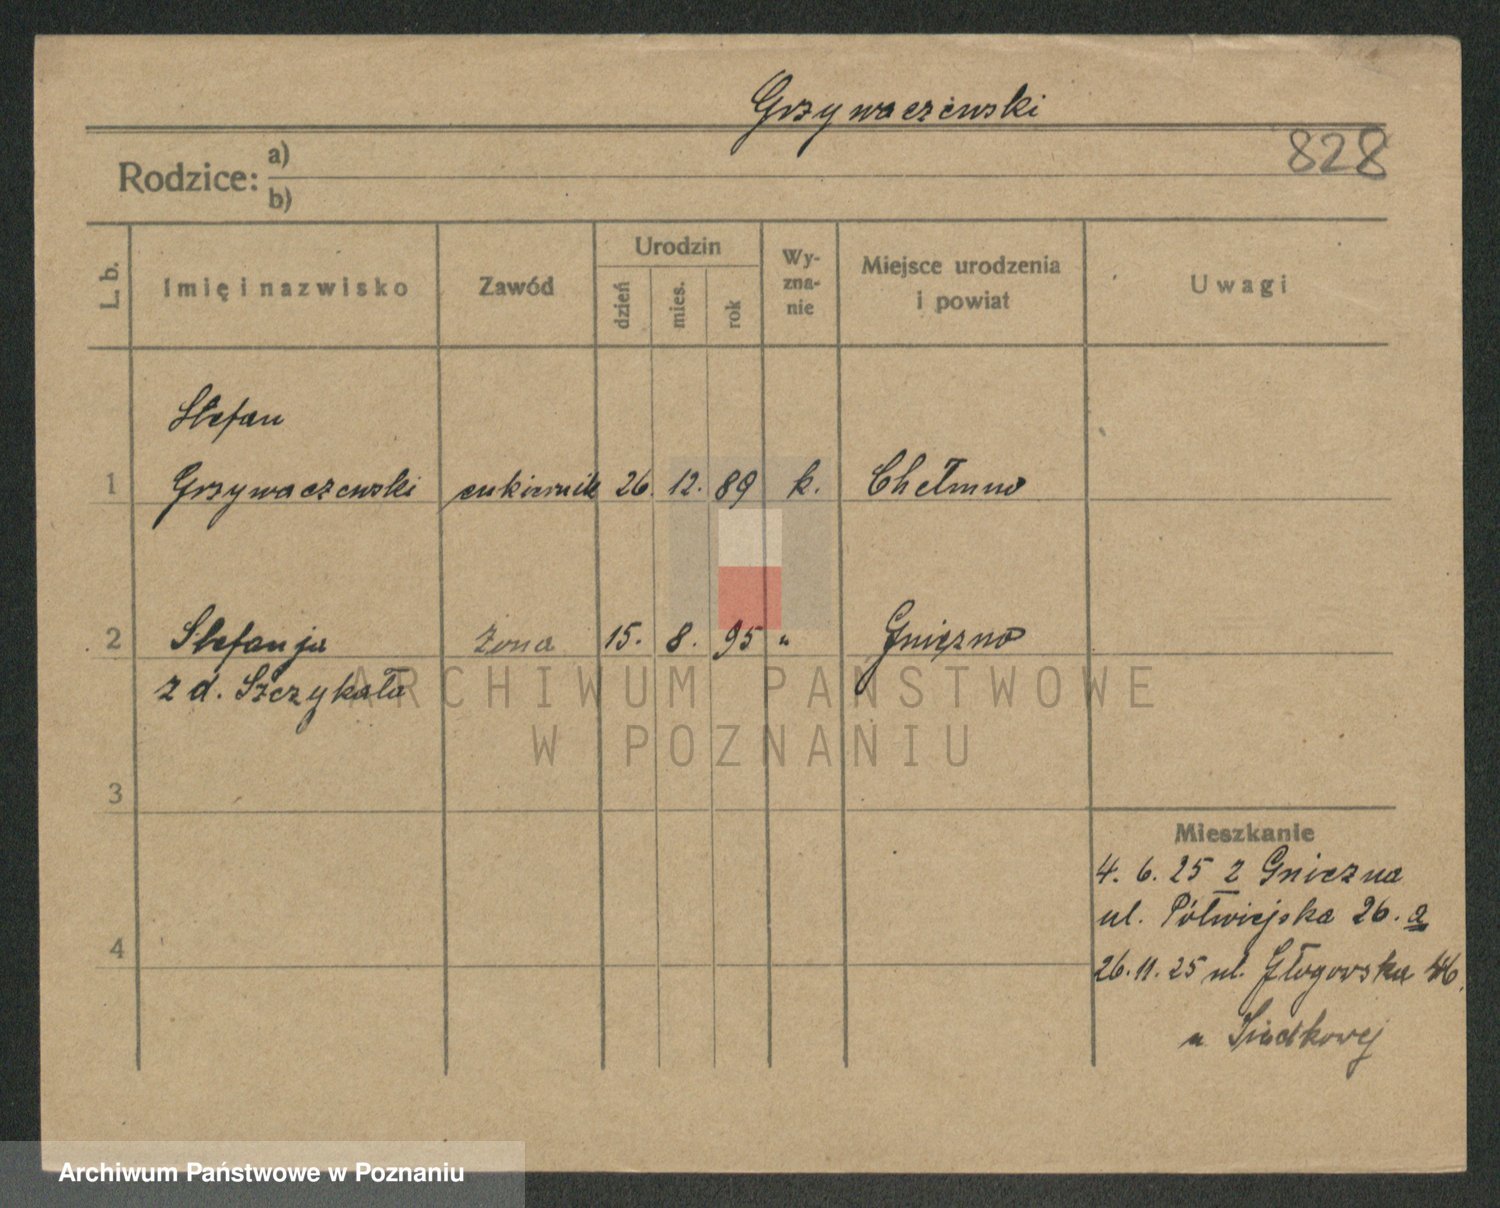 Grzywaczewski
828
Rodzice: a)
b)
L. b.
Imię i nazwisko
Zawód
Urodzin
dzień
mies.
rok
Wy-
zna-
nie
Miejsce urodzenia
i powiat
Uwagi
Stefan
1 Grzywaczewski cukiernik 26. 12. 89 k. Chełmno
2 Stefanja żona 15. 8. 95 " Gniezno
z d. Szczykała
ARCHIWUM PAŃSTWOWE
W POZNANIU
3
Mieszkanie
4. 6. 25 z Gniezna
ul. Półwiejska 26. a
4
26. 11. 25 ul. Głogowska 46.
u
Archiwum Państwowe w Poznaniu